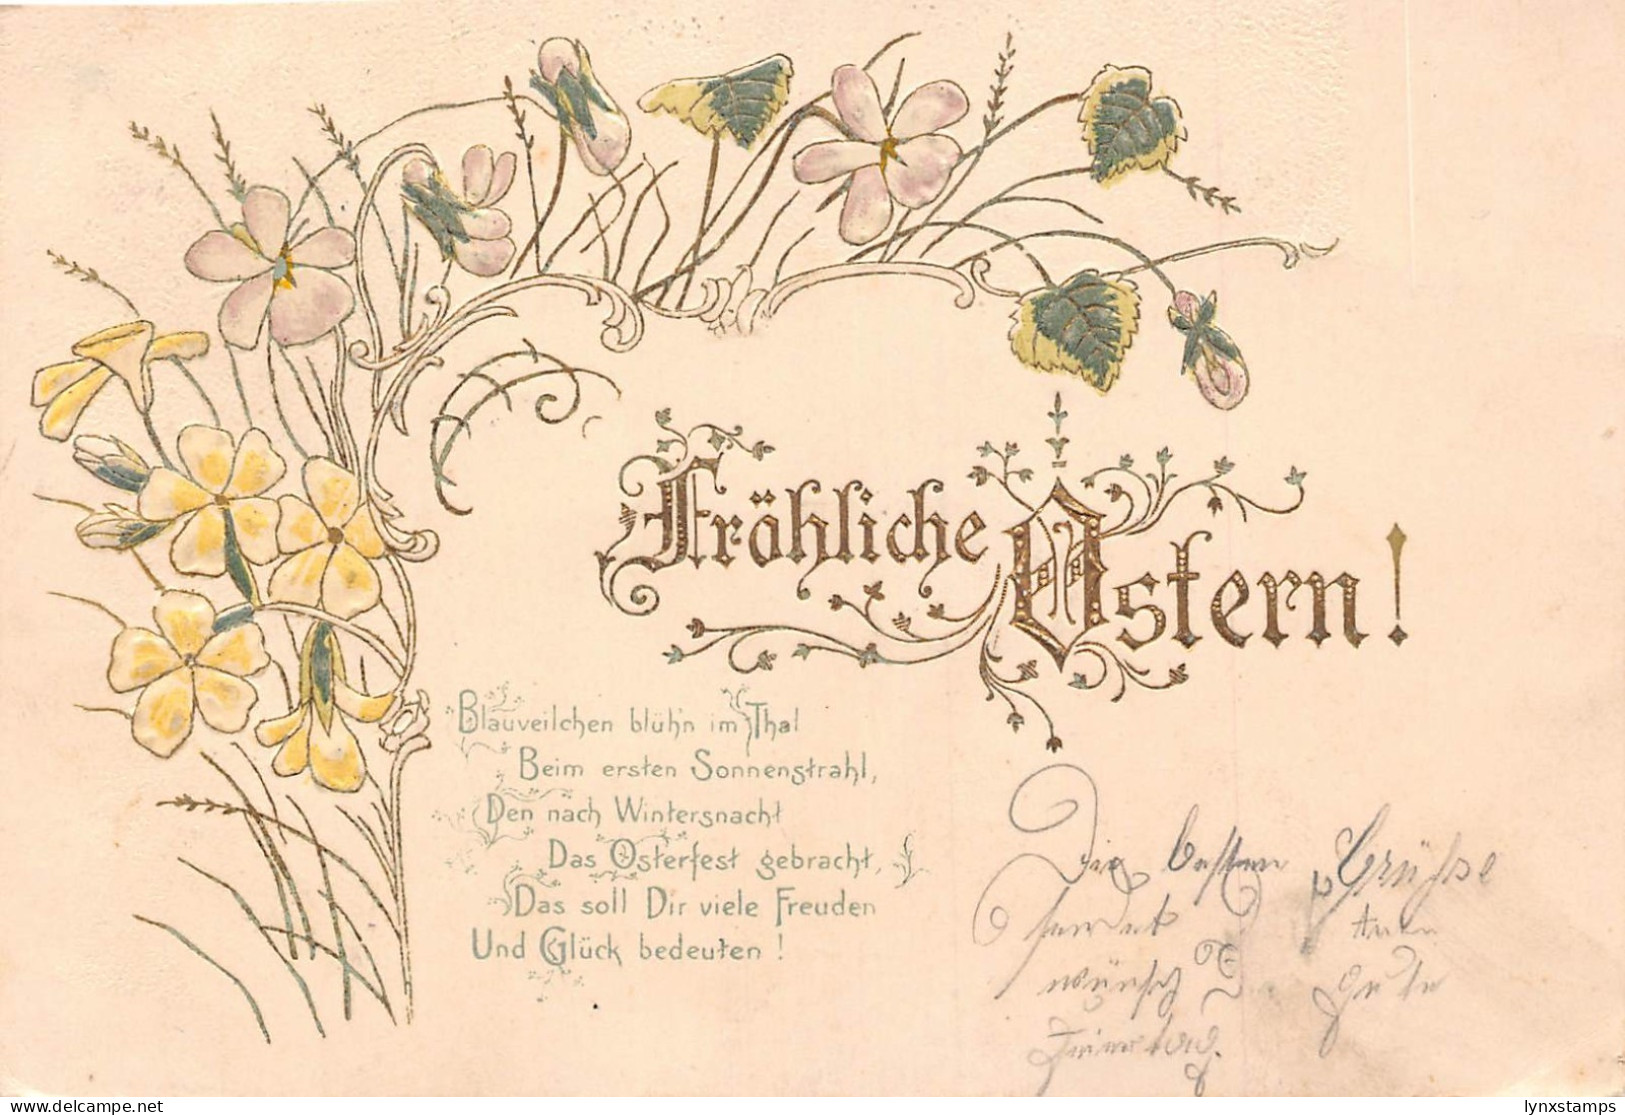 Fröhliche Ostern!
Blauveilchen blüh'n im Thal
Beim ersten Sonnenstrahl,
Den nach Wintersnacht
Das Osterfest gebracht,
Das soll Dir viele Freuden
Und Glück bedeuten!
Die besten Grüsse
sendet
wünsch gute
delcampe.net
lynxstamps